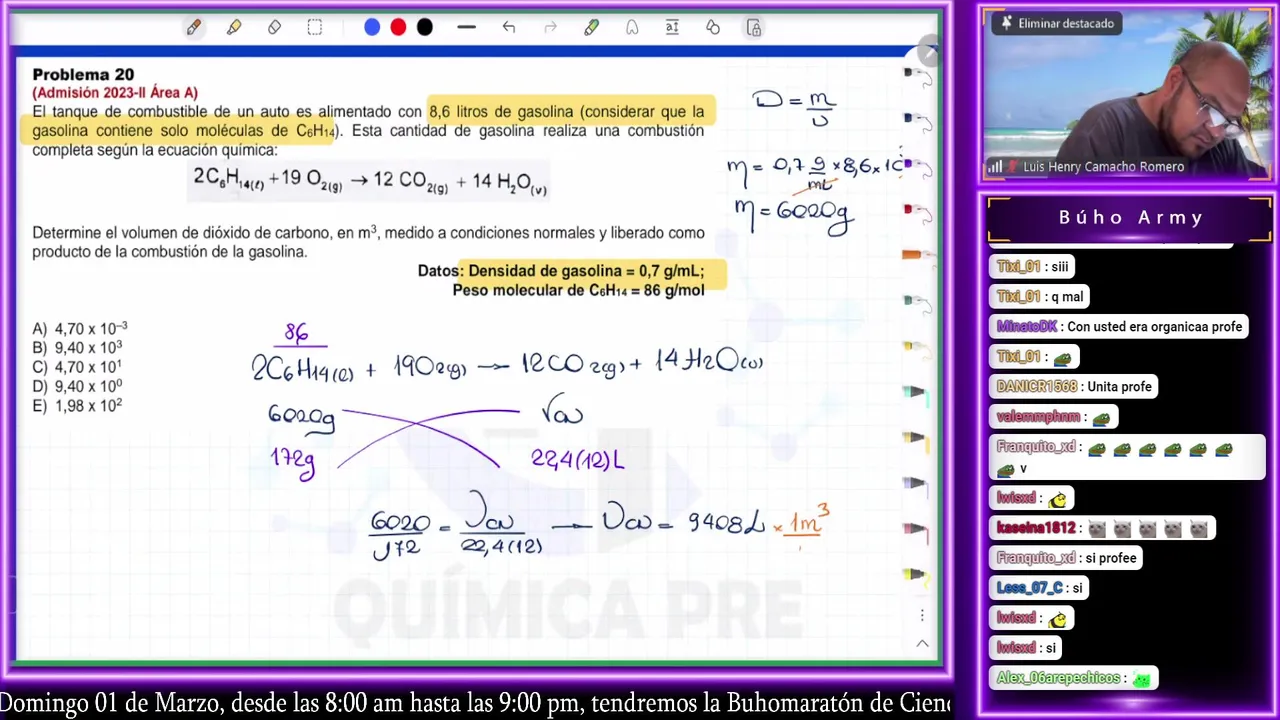 Problema 20
(Admisión 2023-II Área A)
El tanque de combustible de un auto es alimentado con 8,6 litros de gasolina (considerar que la
gasolina contiene solo moléculas de C₆H₁₄). Esta cantidad de gasolina realiza una combustión
completa según la ecuación química:
2C₆H₁₄(ℓ) + 19 O₂(g) → 12 CO₂(g) + 14 H₂O(v)
Determine el volumen de dióxido de carbono, en m³, medido a condiciones normales y liberado como
producto de la combustión de la gasolina.
Datos: Densidad de gasolina = 0,7 g/mL;
Peso molecular de C₆H₁₄ = 86 g/mol
A) 4,70 x 10⁻³
B) 9,40 x 10³
C) 4,70 x 10¹
D) 9,40 x 10⁰
E) 1,98 x 10²
D = m/v
m = 0,7 g/mL × 8,6 × 10
m = 6020g
86
2C6H14(l) + 19O2(g) → 12CO2(g) + 14H2O(v)
6020g VCN
172g 22,4(12)L
6020/172 = VCN/22,4(12) → VCN = 9408L × 1m³
QUÍMICA PRE
Eliminar destacado
Luis Henry Camacho Romero
Búho Army
Tixi_01 : siii
Tixi_01 : q mal
MinatoDK : Con usted era organicaa profe
Tixi_01 :
DANICR1568 : Unita profe
valemmphnm :
Franquito_xd :
v
lwisxd :
kaseina1812 :
Franquito_xd : si profee
Less_07_C : si
lwisxd :
lwisxd : si
Alex_06arepechicos :
Domingo 01 de Marzo, desde las 8:00 am hasta las 9:00 pm, tendremos la Buhomaratón de Cien